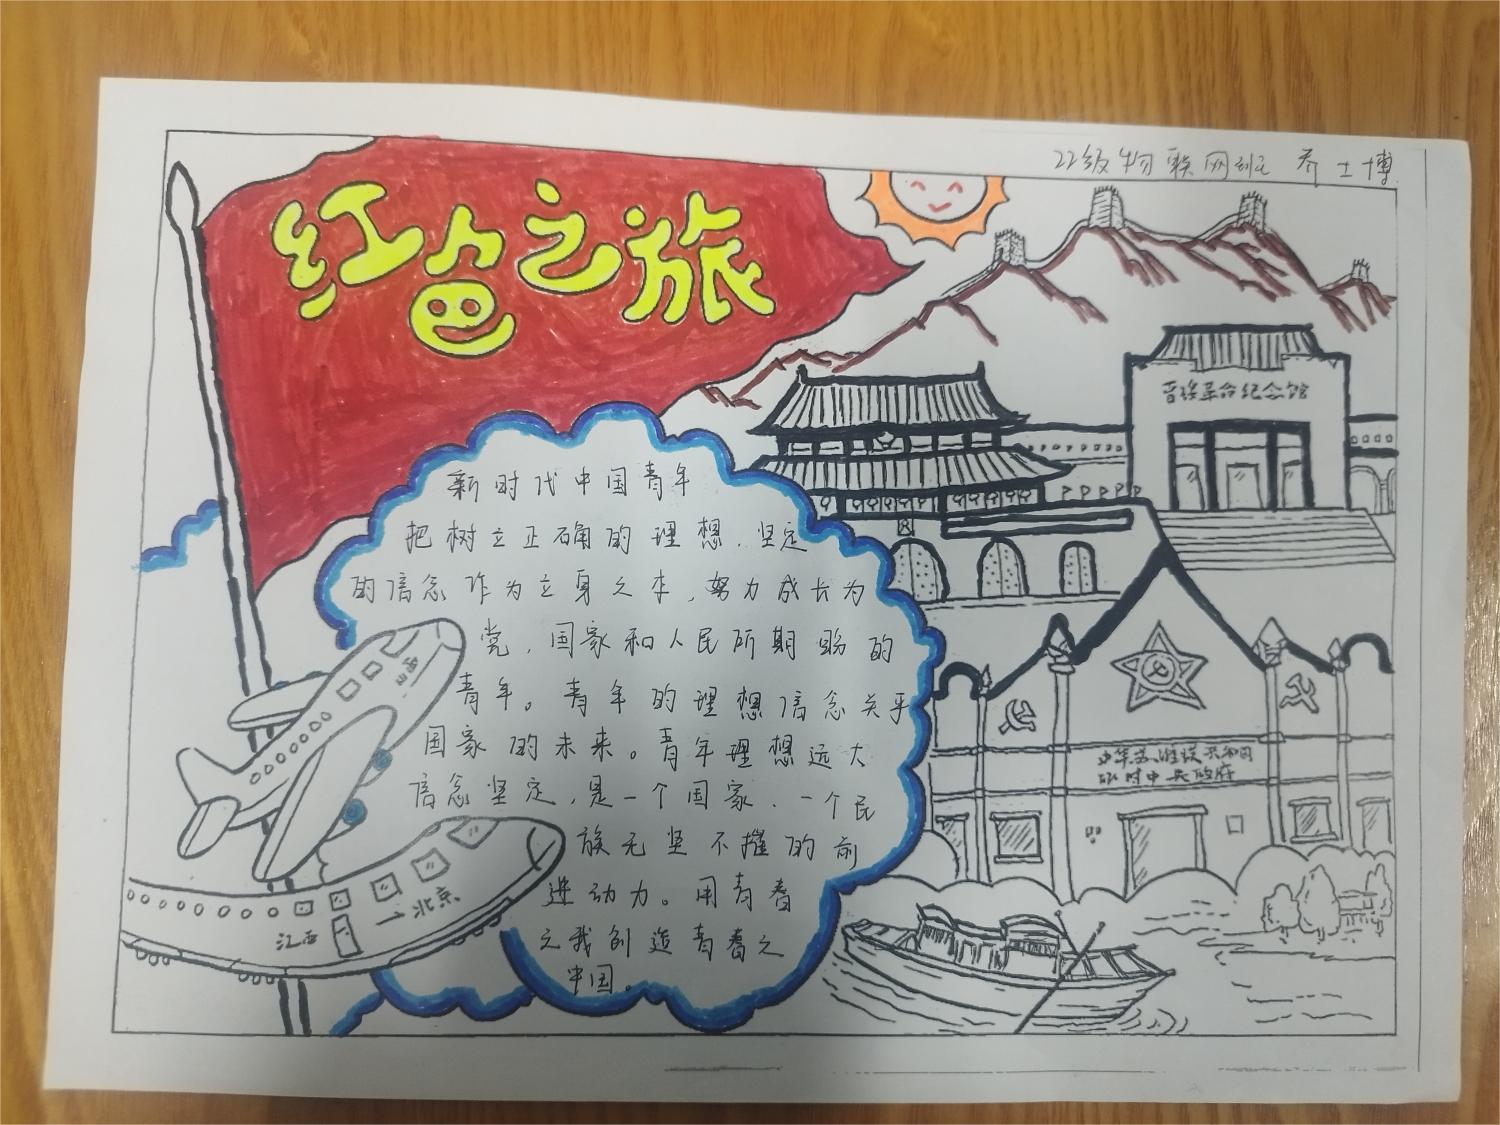 22级物联网班 乔士博
红色之旅
晋绥革命纪念馆
新时代中国青年
把树立正确的理想、坚定
的信念作为立身之本,努力成长为
党、国家和人民所期盼的
青年。青年的理想信念关乎
国家的未来。青年理想远大
信念坚定,是一个国家、一个民
族无坚不摧的前
进动力。用青春
之我创造青春之
中国。
中华苏维埃共和国
临时中央政府
江西—北京